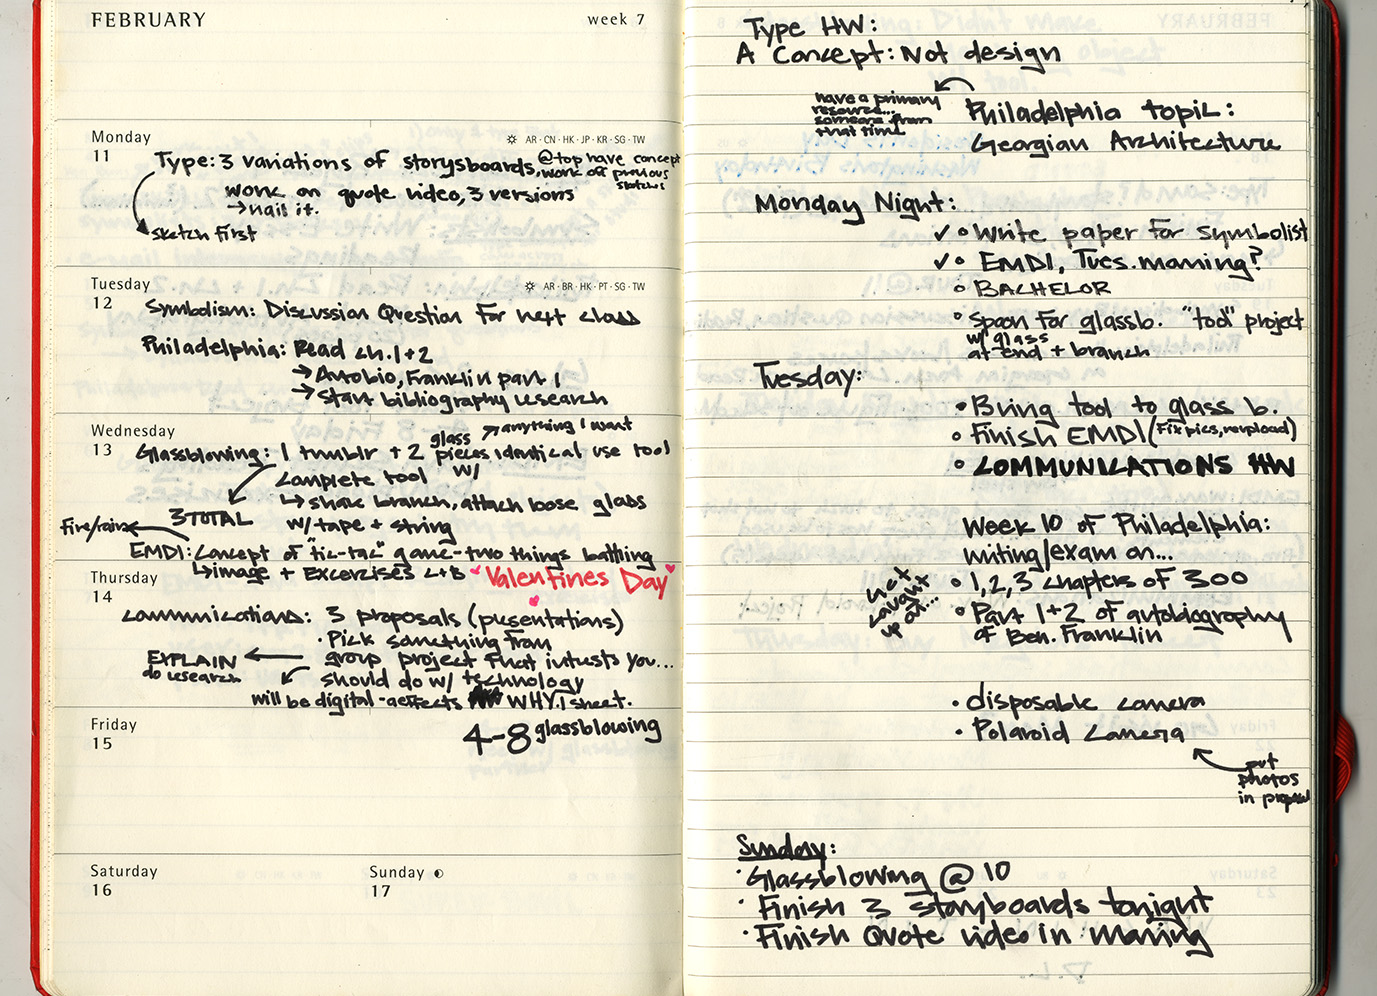 FEBRUARY
week 7
Monday
11
AR · CN · HK · JP · KR · SG · TW
Type: 3 variations of storysboards, @top have concept
work off previous
sketches
work on quote video, 3 versions
→nail it.
sketch first
Tuesday
12
AR · BR · HK · PT · SG · TW
Symbolism: Discussion Question For next class
Philadelphia: Read ch.1+2
→ Autobio, Franklin part 1
→ Start bibliography research
Wednesday
13
glass → anything I want
Glassblowing: 1 tumblr + 2 pieces identical use tool
w/
complete tool
↳ shake branch, attach loose glass
3 TOTAL w/ tape + string
Fire/rain
EMDI: Concept of "tic-tac" game - two things battling
↳ image + Excercises L+B
Valentines Day
Thursday
14
Communications: 3 proposals (presentations)
· Pick something from
EXPLAIN group project that intrests you...
do research should do w/ technology
will be digital - aeffects WHY. 1 sheet.
Friday
15
4-8 glassblowing
Saturday
16
Sunday
17
Type HW:
A Concept: Not design
have a primary
resource...
someone from
that time
Philadelphia topic:
Georgian Architecture
Monday Night:
✓ • Write paper for symbolist
✓ • EMDI, Tues. morning?
• BACHELOR
• Spoon For glassb. "tool" project
w/ glass
at end + branch
Tuesday:
• Bring tool to glass b.
• Finish EMDI (Fix pics, reupload)
• COMMUNICATIONS HW
Week 10 of Philadelphia:
writing/exam on...
Get
caught
up at...
• 1, 2, 3 chapters of 300
• Part 1+2 of autobiography
of Ben. Franklin
• disposable camera
• Polaroid camera
put
photos
in proposal
Sunday:
· Glassblowing @ 10
· Finish 3 storyboards tonight
· Finish Quote video in morning